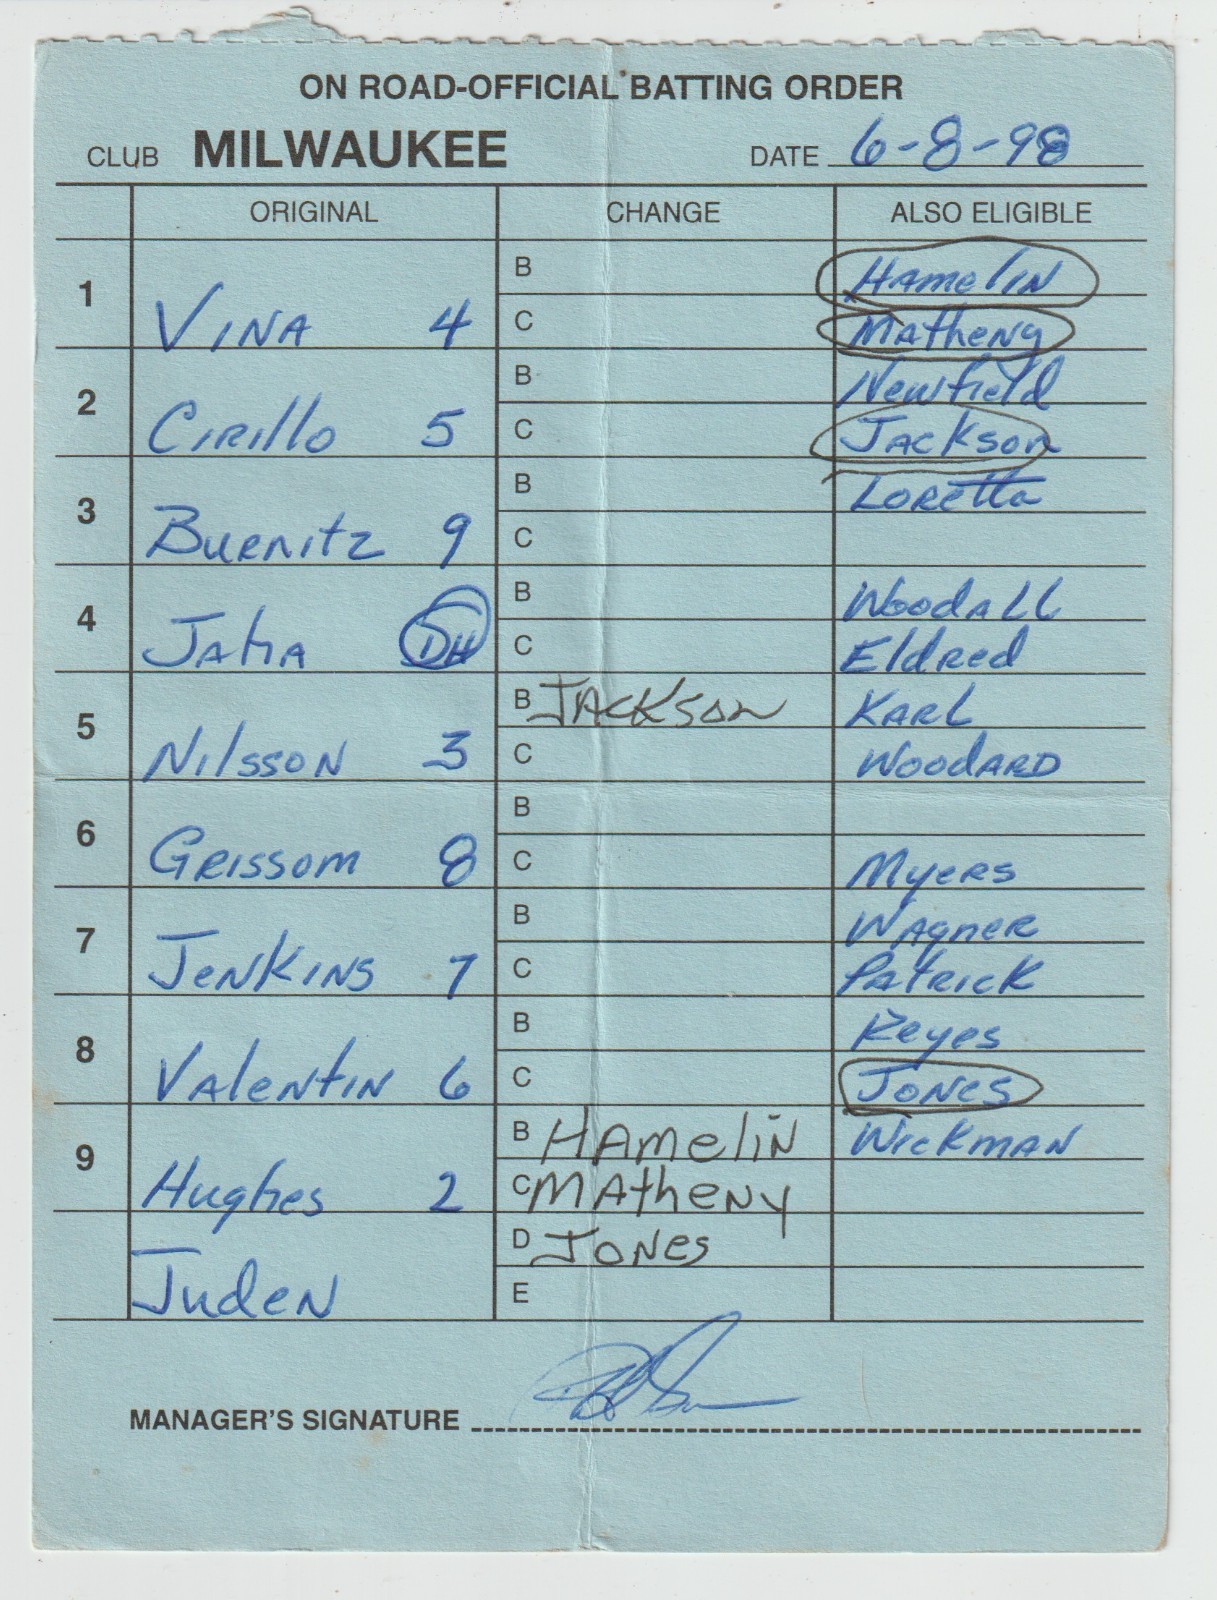 ON ROAD-OFFICIAL BATTING ORDER
CLUB MILWAUKEE DATE 6-8-98
ORIGINAL CHANGE ALSO ELIGIBLE
1 Vina 4 B Hamelin
C Matheny
2 Cirillo 5 B Newfield
C Jackson
3 Burnitz 9 B Loretta
C
4 Jaha DH B Woodall
C Eldred
5 Nilsson 3 B Jackson Karl
C Woodard
6 Grissom 8 B
C Myers
7 Jenkins 7 B Wagner
C Patrick
8 Valentin 6 B Reyes
C Jones
9 Hughes 2 B Hamelin Wickman
C Matheny
Juden D Jones
E
MANAGER'S SIGNATURE